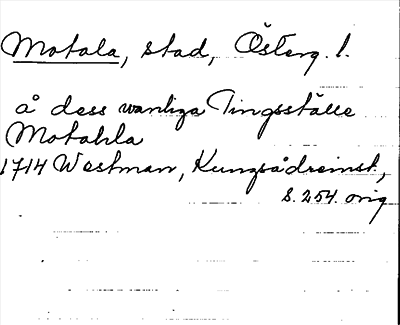 Motala, stad, Österg. l.
å dess wanliga Tingsställe
Motahla
1714 Westman, Kungsådreinst.,
S. 254. orig